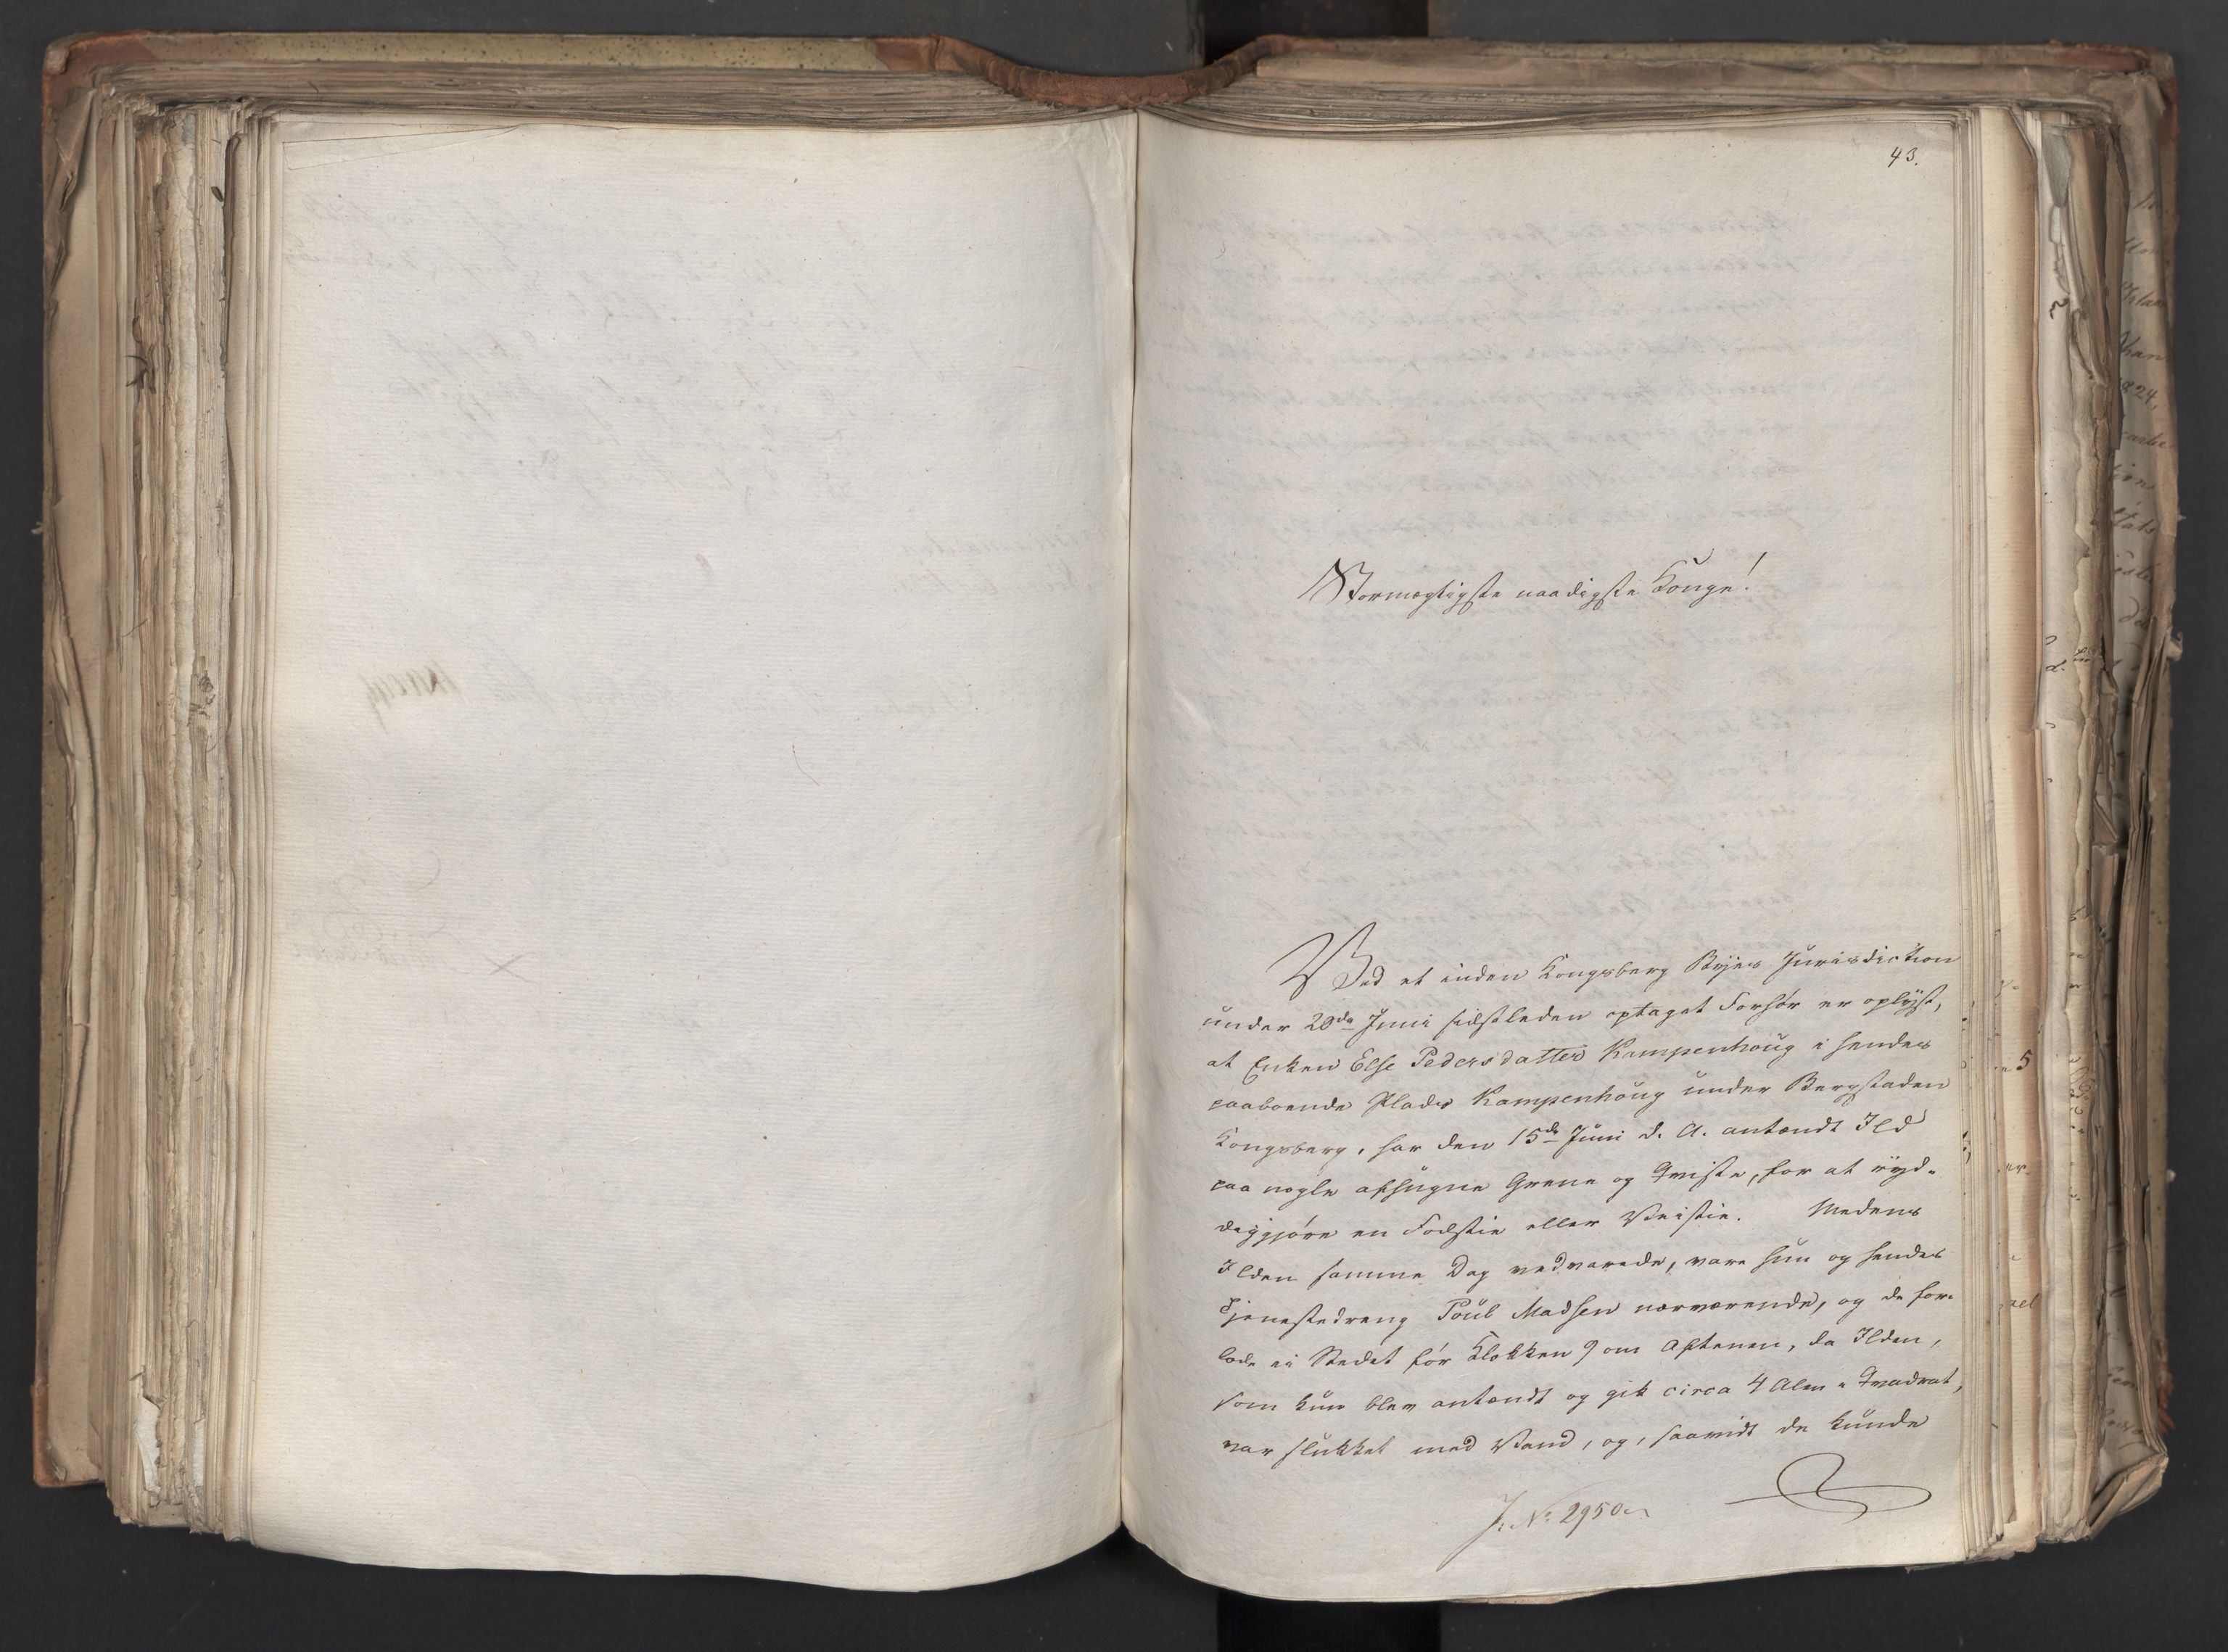 43.
Stormægtigste naadigste Konge!
Ved et inden Kongsberg Byes Jurisdiction
under 20de Juni sidstleden optaget Forhør er oplyst,
at Enken Else Pedersdatter Kampenhoug i hendes
paaboende Plads Kampenhoug under Bergstaden
Kongsberg, har den 15de Juni d. A. antændt Ild
paa nogle afhugne Grene og Qviste, for at ryd-
diggjøre en Fodstie eller Veistie. Medens
Ilden samme Dag vedvarede, vare hun og hendes
Tjenestedreng Poul Madsen nærværende, og de for-
lode ei Stedet før Klokken 9 om Aftenen, da Ilden,
som kun blev antændt og gik circa 4 Alen i Qvadrat,
var slukket med Vand, og, saavidt de kunde
J. No 2950